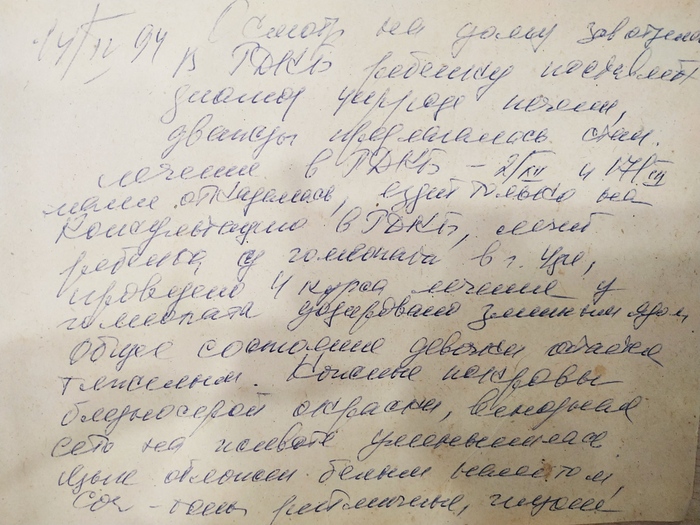 14/IV 94 Осмотр на дому зав отдел
В РДКБ ребенку поставлен
диагноз цирроз печени,
дважды предлагалась стац.
лечение в РДКБ – 2/XII и 17/XII
мама отказалась, ездит только на
консультацию в РДКБ, лечит
ребенка у гомеопата в г. Уфе,
проведено 4 курса лечения у
гомеопата змеиным ядом
Общее состояние девочки остается
тяжелым. Кожные покровы
бледносерой окраски, венозная
сеть на животе уменьшилась
Язык обложен белым налетом,
Сог – тоны ритмичные,